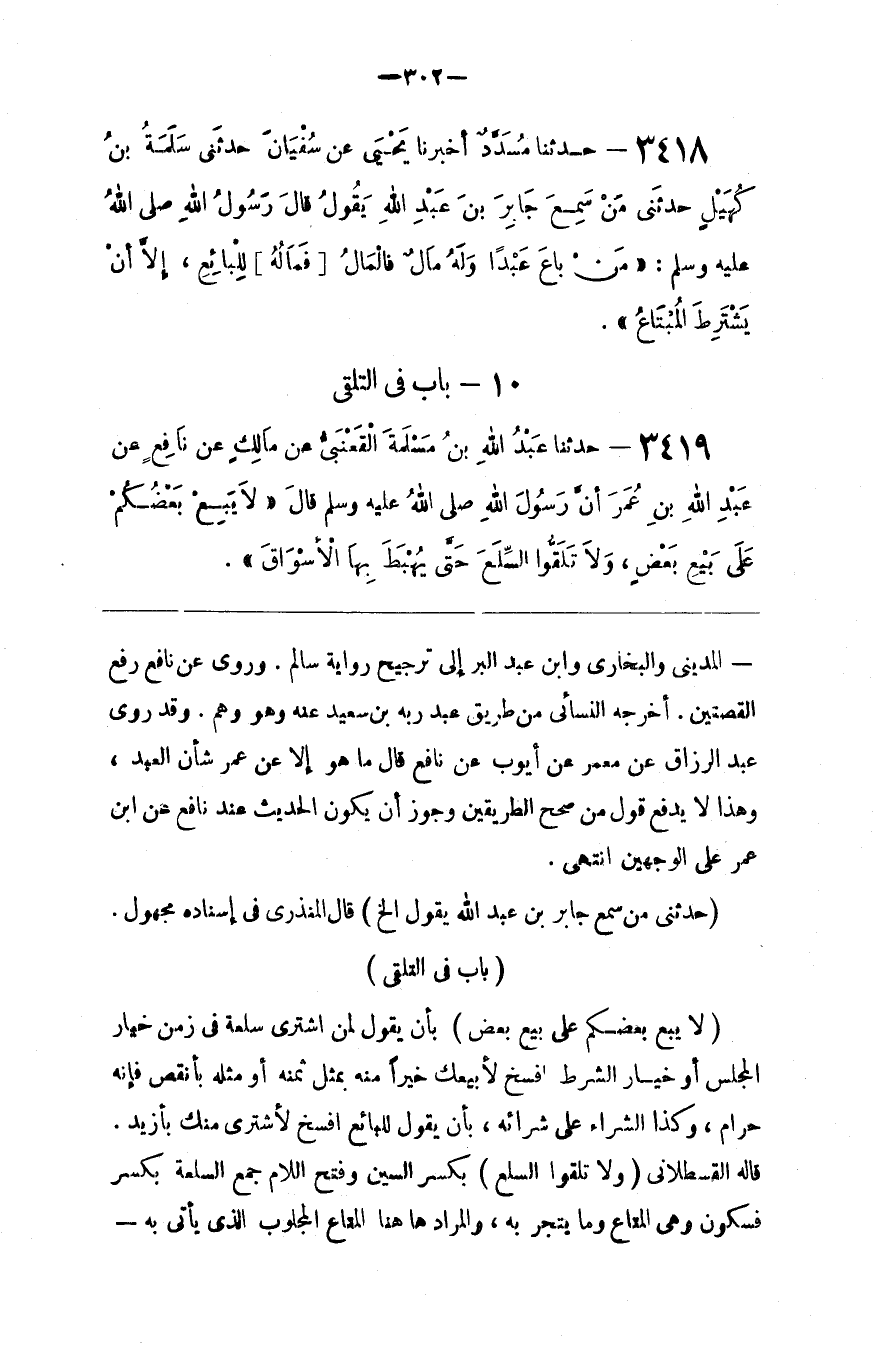 —٣٠٢—
٣٤١٨ — حدثنا مُسَدَّدٌ أخبرنا يَحْيَى عن سُفْيَانَ حدثَنى سَلَمَةُ بنُ
كُهَيْلٍ حدثَنى مَنْ سَمِعَ جَابِرَ بنَ عَبْدِ اللهِ يَقُولُ قالَ رَسُولُ اللهِ صلى اللهُ
عليه وسلم : « مَنْ باعَ عَبْدًا وَلَهُ مالٌ فالْمَالُ [ فَمَالُهُ ] لِلْبَائِعِ ، إِلاَّ أنْ
يَشْتَرِطَ الْمُبْتَاعُ » .
١٠ — باب فى التلقى
٣٤١٩ — حدثنا عَبْدُ اللهِ بنُ مَسْلَمَةَ الْقَعْنَبِىُّ عن مالِكٍ عن نَافِعٍ عن
عَبْدِ اللهِ بنِ عُمَرَ أنَّ رَسُولَ اللهِ صلى اللهُ عليه وسلم قالَ « لاَ يَبِعْ بَعْضُكُمْ
عَلَى بَيْعِ بَعْضٍ ، وَلاَ تَلَقَّوُا السِّلَعَ حَتَّى يُهْبَطَ بِهَا الْأسْوَاقَ » .
— المدينى والبخارى وابن عبد البر إلى ترجيح رواية سالم . وروى عن نافع رفع
القصتين . أخرجه النسائى من طريق عبد ربه بن سعيد عنه وهو وهم . وقد روى
عبد الرزاق عن معمر عن أيوب عن نافع قال ما هو إلا عن عمر شأن العبد ،
وهذا لا يدفع قول من صحح الطريقين وجوز أن يكون الحديث عند نافع عن ابن
عمر على الوجهين انتهى .
( حدثنى من سمع جابر بن عبد الله يقول الخ ) قال المنذرى فى إسناده مجهول .
( باب فى التلقى )
( لا يبع بعضكم على بيع بعض ) بأن يقول لمن اشترى سلعة فى زمن خيار
المجلس أو خيار الشرط افسخ لأبيعك خيراً منه بمثل ثمنه أو مثله بأنقص فإنه
حرام ، وكذا الشراء على شرائه ، بأن يقول للبائع افسخ لأشترى منك بأزيد .
قاله القسطلانى ( ولا تلقوا السلع ) بكسر السين وفتح اللام جمع السلعة بكسر
فسكون وهى المتاع وما يتجر به ، والمراد هاهنا المتاع المجلوب الذى يأتى به —